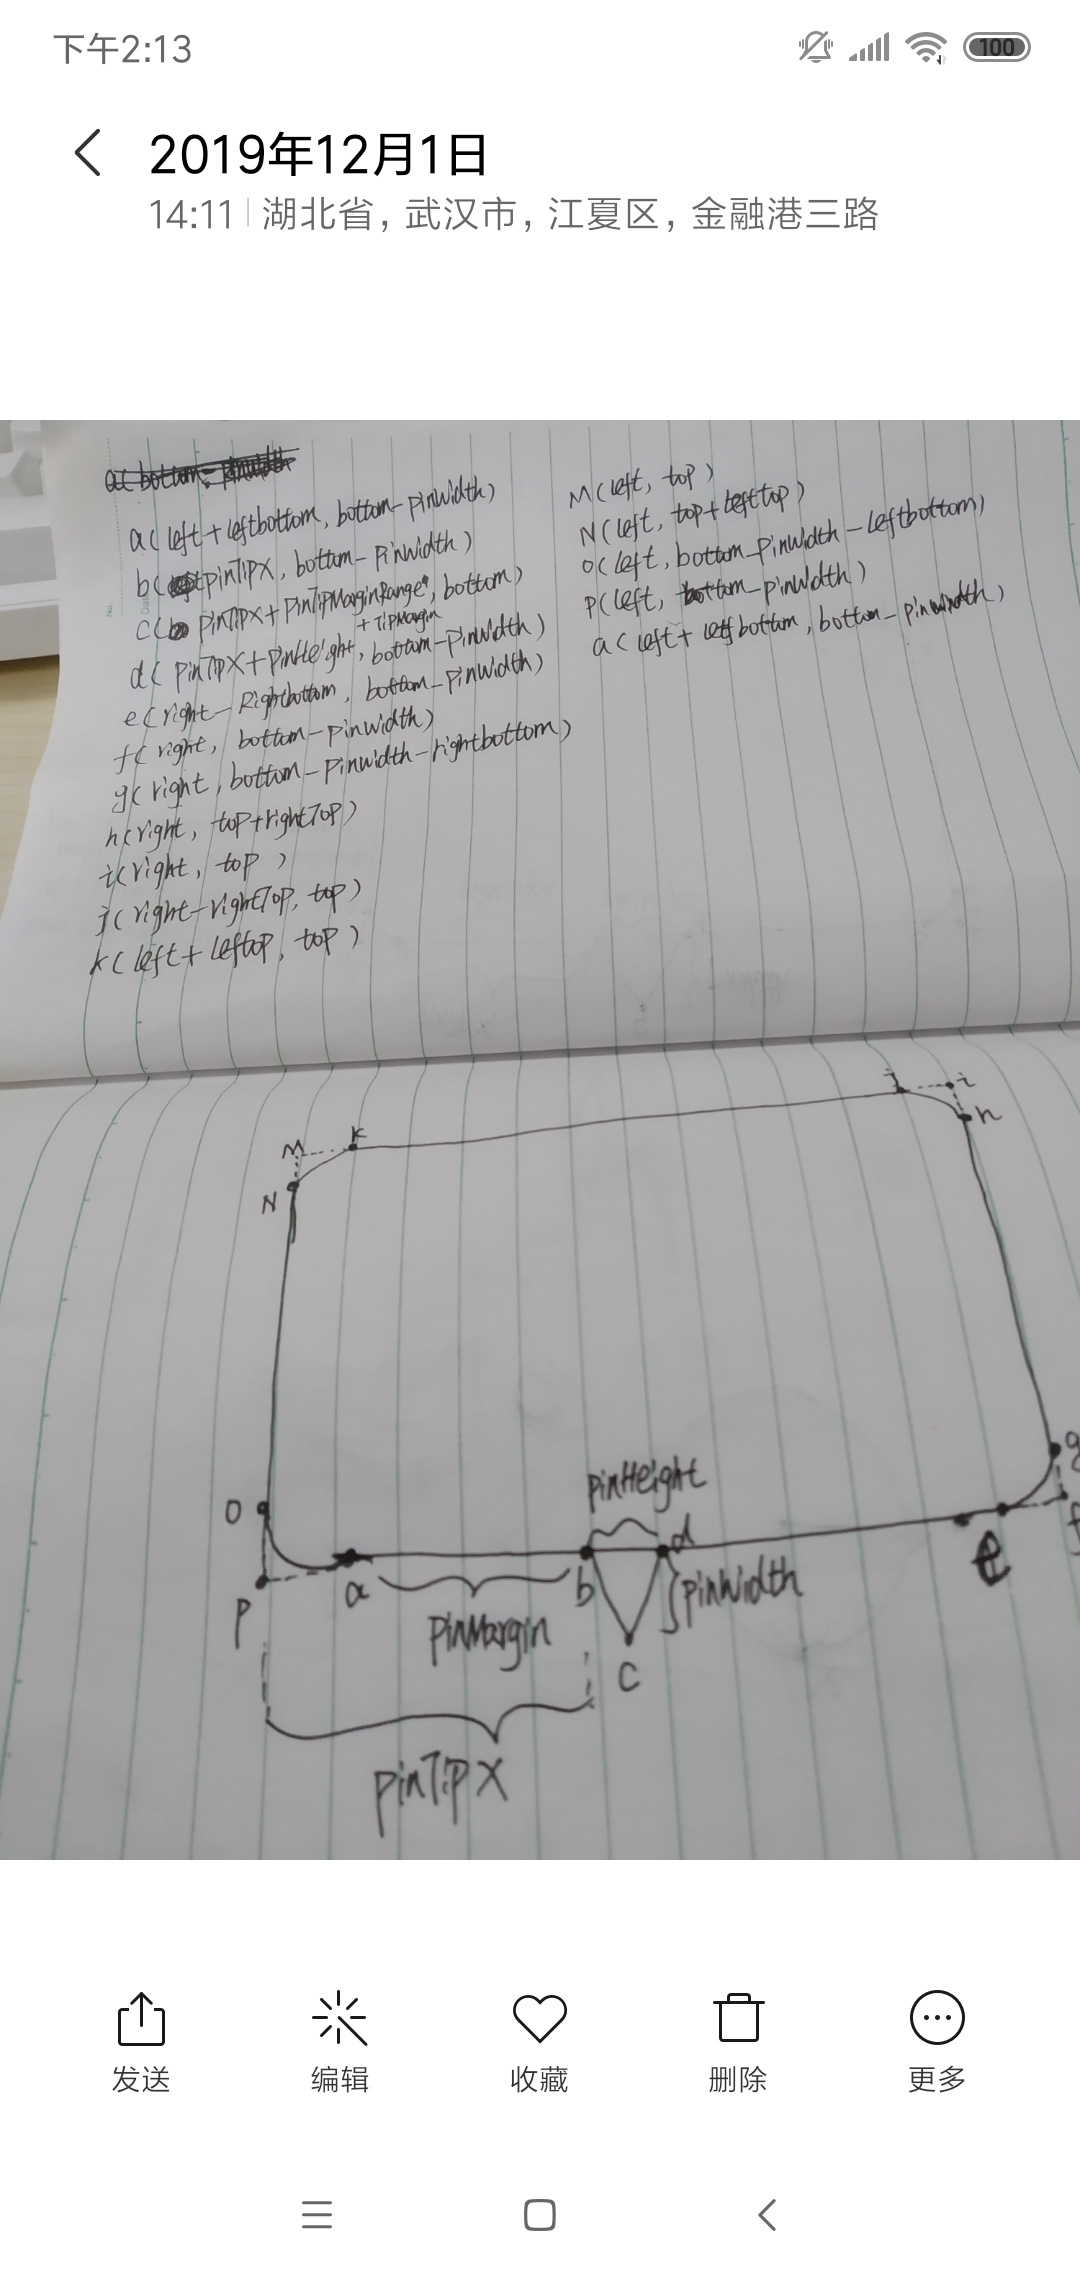 下午2:13
100
2019年12月1日
14:11 湖北省, 武汉市, 江夏区, 金融港三路
a( bottom - pinwidth
a( left+leftbottom, bottom-pinwidth)
b( pinTipX, bottom-Pinwidth)
c( pinTipX+PinTipMarginRange, bottom)
+ TipMargin
d( pinTipX+pinHeight, bottom-pinWidth)
e(right-Rightbottom, bottom-pinwidth)
f( right, bottom-pinwidth)
g( right, bottom-Pinwidth-rightbottom)
h(right, top+rightTop)
i(right, top )
j(right-rightTop, top)
k( left+leftop, top )
M(left, top )
N(left, top+lefttop)
o(left, bottom-pinwidth-leftbottom)
P(left, bottom-pinwidth)
a( left+leftbottom, bottom-pinwidth)
j
i
h
M
k
N
g
pinHeight
o
d
f
e
a
b
pinwidth
p
pinMargin
c
pinTipX
发送
编辑
收藏
删除
更多